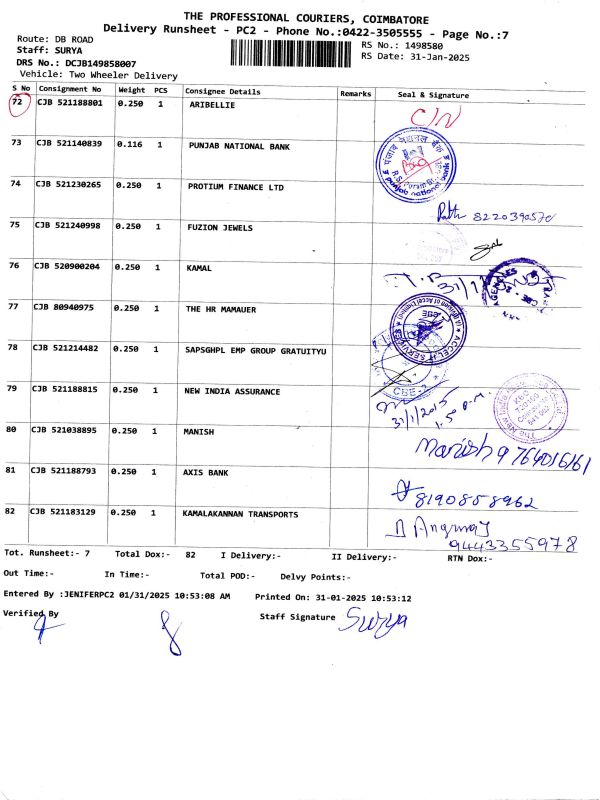 THE PROFESSIONAL COURIERS, COIMBATORE
Delivery Runsheet - PC2 - Phone No.:0422-3505555 - Page No.:7
Route: DB ROAD
Staff: SURYA
DRS No.: DCJB149858007
Vehicle: Two Wheeler Delivery
RS No.: 1498580
RS Date: 31-Jan-2025
S No Consignment No Weight PCS Consignee Details Remarks Seal & Signature
72 CJB 521188801 0.250 1 ARIBELLIE
C/N
73 CJB 521140839 0.116 1 PUNJAB NATIONAL BANK
punjab national bank
74 CJB 521230265 0.250 1 PROTIUM FINANCE LTD
8220390570
75 CJB 521240998 0.250 1 FUZION JEWELS
76 CJB 520900204 0.250 1 KAMAL
AGENCIES
77 CJB 80940975 0.250 1 THE HR MAMAUER
ACCEL IT SERVICES
78 CJB 521214482 0.250 1 SAPSGHPL EMP GROUP GRATUITYU
CBE-2
79 CJB 521188815 0.250 1 NEW INDIA ASSURANCE
31/1/2025
80 CJB 521038895 0.250 1 MANISH
Manish 9764016161
81 CJB 521188793 0.250 1 AXIS BANK
8190858962
82 CJB 521183129 0.250 1 KAMALAKANNAN TRANSPORTS
9443355978
Tot. Runsheet:- 7 Total Dox:- 82 I Delivery:- II Delivery:- RTN Dox:-
Out Time:- In Time:- Total POD:- Delvy Points:-
Entered By :JENIFERPC2 01/31/2025 10:53:08 AM Printed On: 31-01-2025 10:53:12
Verified By Staff Signature Surya